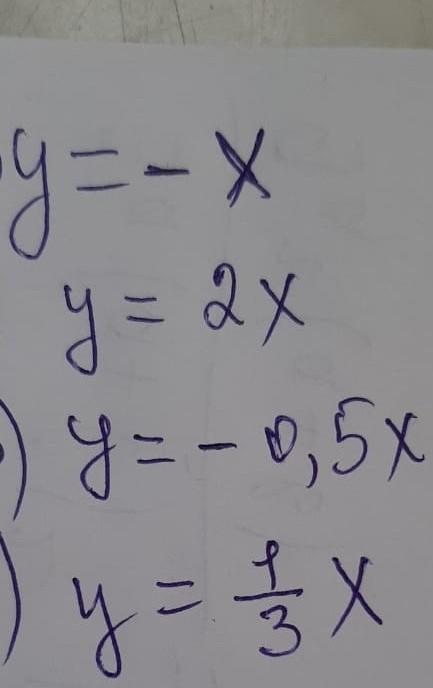 y = - x
y = 2x
) y = - 0,5x
) y = 1/3 x